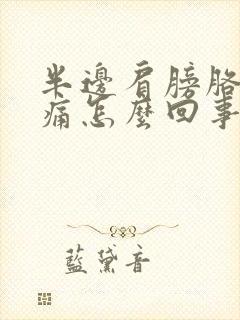 半邊肩膀胳
痛怎麼回事
藍黛音